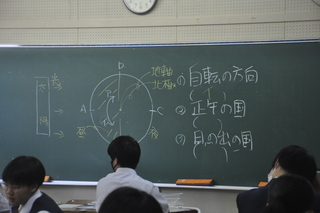 D
地軸
北極
A
C
昼
夜
① 自転の方向
② 正午の国
③ 日の出の国